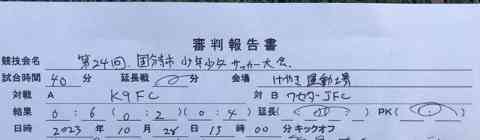 審判報告書
競技会名 第24回 国分寺市 少年少女 サッカー大会
試合時間 40 分 延長戦 分 会場 けやき運動場
対戦 A K9FC 対 B ワセダJFC
結果 0 : 6 ( 0 : 2 ) ( 0 : 4 ) 延長( ) PK( )
日時 2023 年 10 月 28 日 13 時 00 分 キックオフ